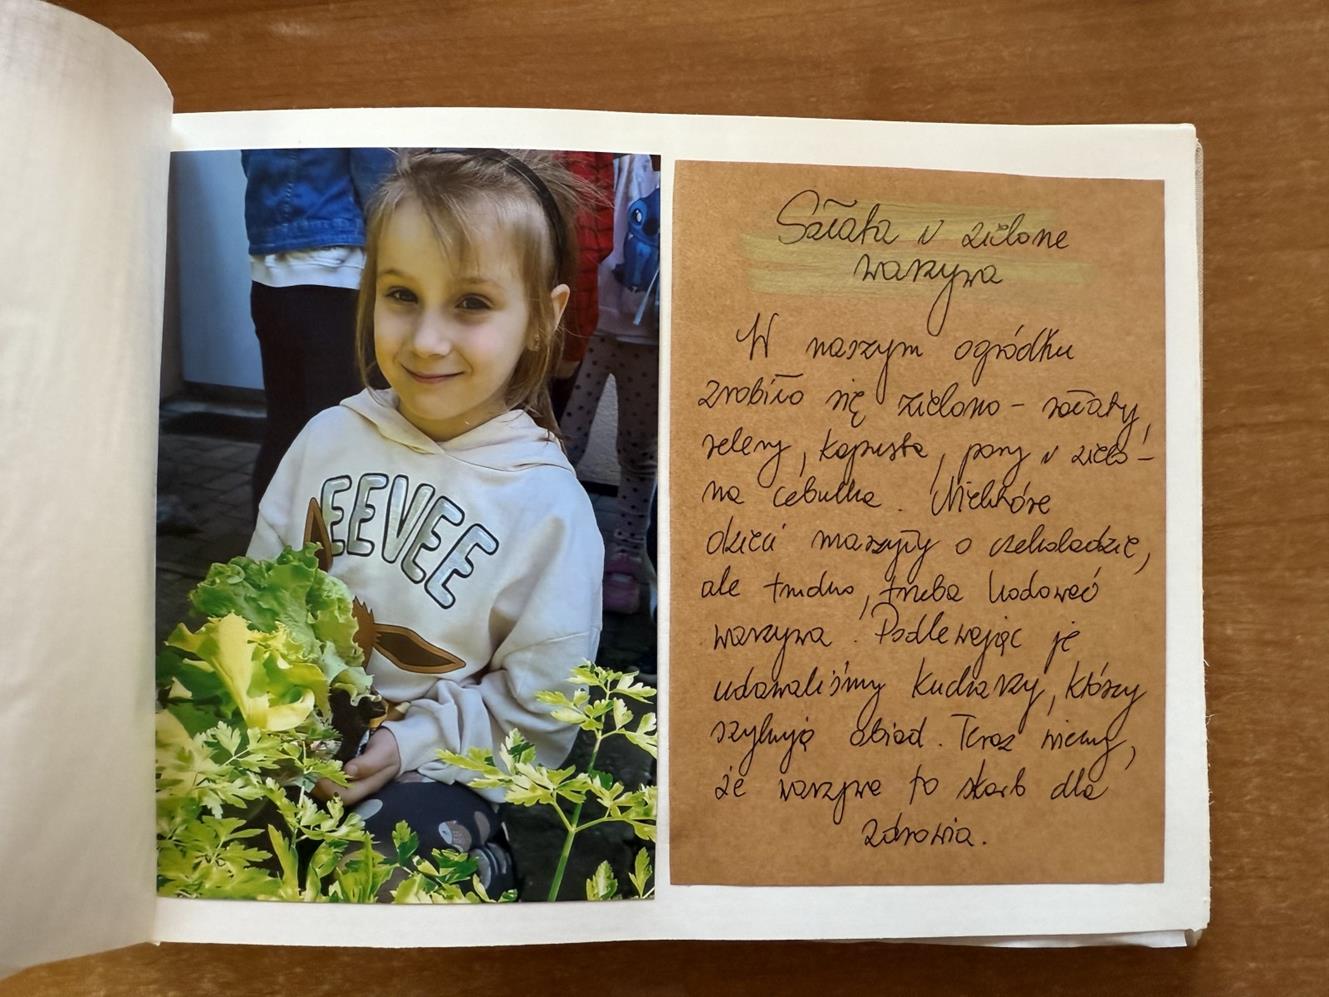 EEVEE
Sałata i zielone
warzywa
W naszym ogródku
zrobiło się zielono - sałaty,
selery, kapusta, pory i zielo-
na cebulka. Niektóre
dzieci marzyły o czekoladzie,
ale trudno, trzeba hodować
warzywa! Podlewając je
udawaliśmy kucharzy, którzy
szykują obiad. Teraz wiemy,
że warzywa to skarb dla
zdrowia.